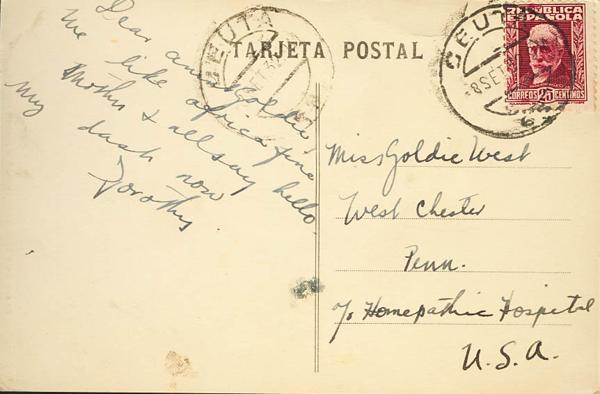 TARJETA POSTAL
CEUTA
CEUTA
8 SET
REPUBLICA
ESPAÑOLA
CORREOS 25 CENTIMOS
Dear aunt Goldie,
We like africa fine
Mother & all say hello.
My dash now
Dorothy.
Miss Goldie West
West Chester
Penn.
℅ Homepathic Hospital
U.S.A.